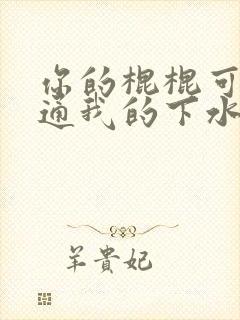 你的棍棍可
通我的下水
羊貴妃